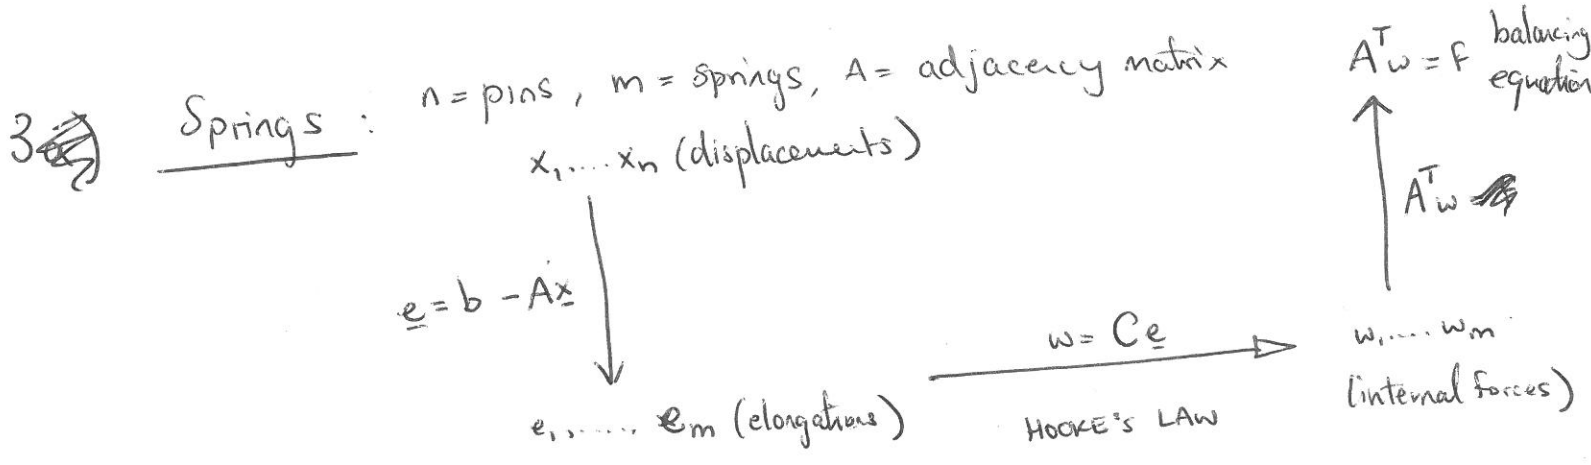 3 Springs : n = pins , m = springs, A = adjacency matrix
AᵀW = F balancing equation
x₁,.... xₙ (displacements)
Aᵀw
e = b - Ax
w = Ce
HOOKE'S LAW
w₁,.... wₘ
(internal forces)
e₁,...... eₘ (elongations)